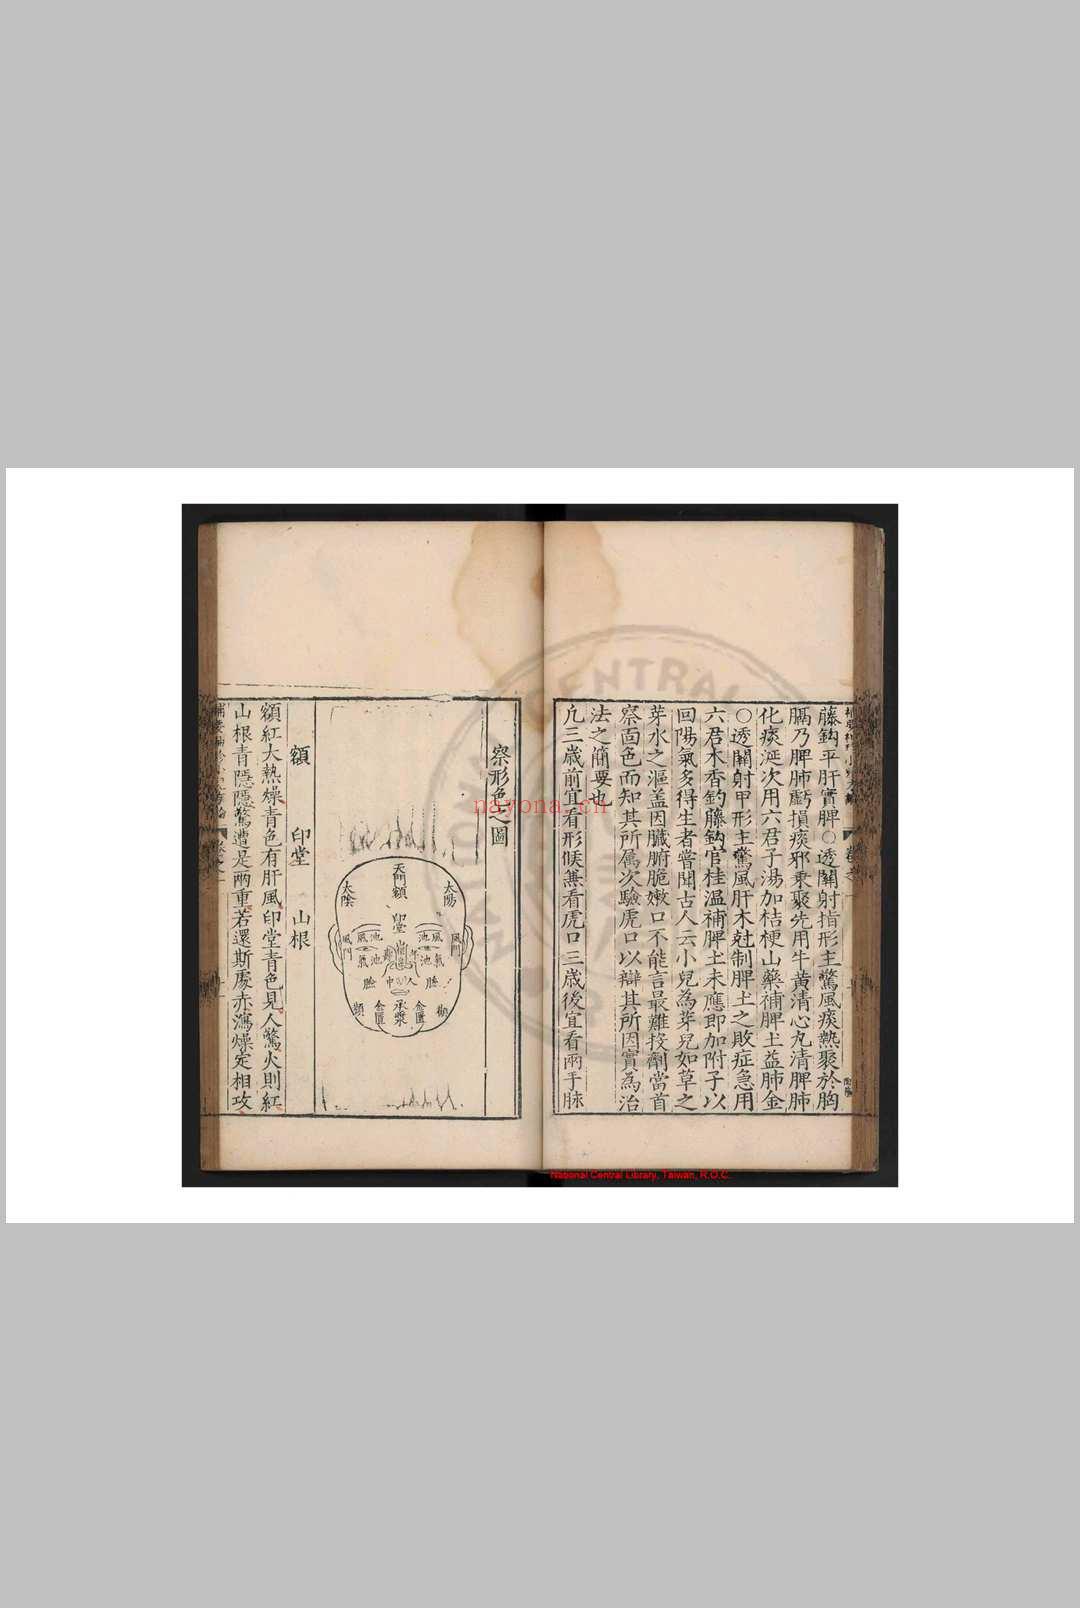 藤鈎平肝實脾○透關射指形主驚風痰熱聚於胸
膈乃脾肺虧損痰邪乗聚先用牛黄清心丸清脾肺
化痰涎次用六君子湯加桔梗山藥補脾土益肺金
○透關射甲形主驚風肝木尅制脾土之敗症急用
六君木香釣藤鈎官桂温補脾土未應即加附子以
回陽氣多得生者嘗聞古人云小兒為芽兒如草之
芽水之漚盖因臓腑脆嫩口不能言最難投劑當首
察面色而知其所属次驗虎口以辯其所因實為治
法之簡要也
凢三歳前宜看形候無看虎口三歳後宜看兩手脉
察形色之圖
天門
額
太陽
太陰
印堂
風池
風池
風門
風門
氣池
氣池
臉
人中
臉
承漿
金匱
金匱
額 印堂 山根
額紅大熱燥青色有肝風印堂青色見人驚火則紅
山根青隱隱驚遭是兩重若還斯處赤瀉燥定相攻
nayona.cn
National Central Library, Taiwan, R.O.C.